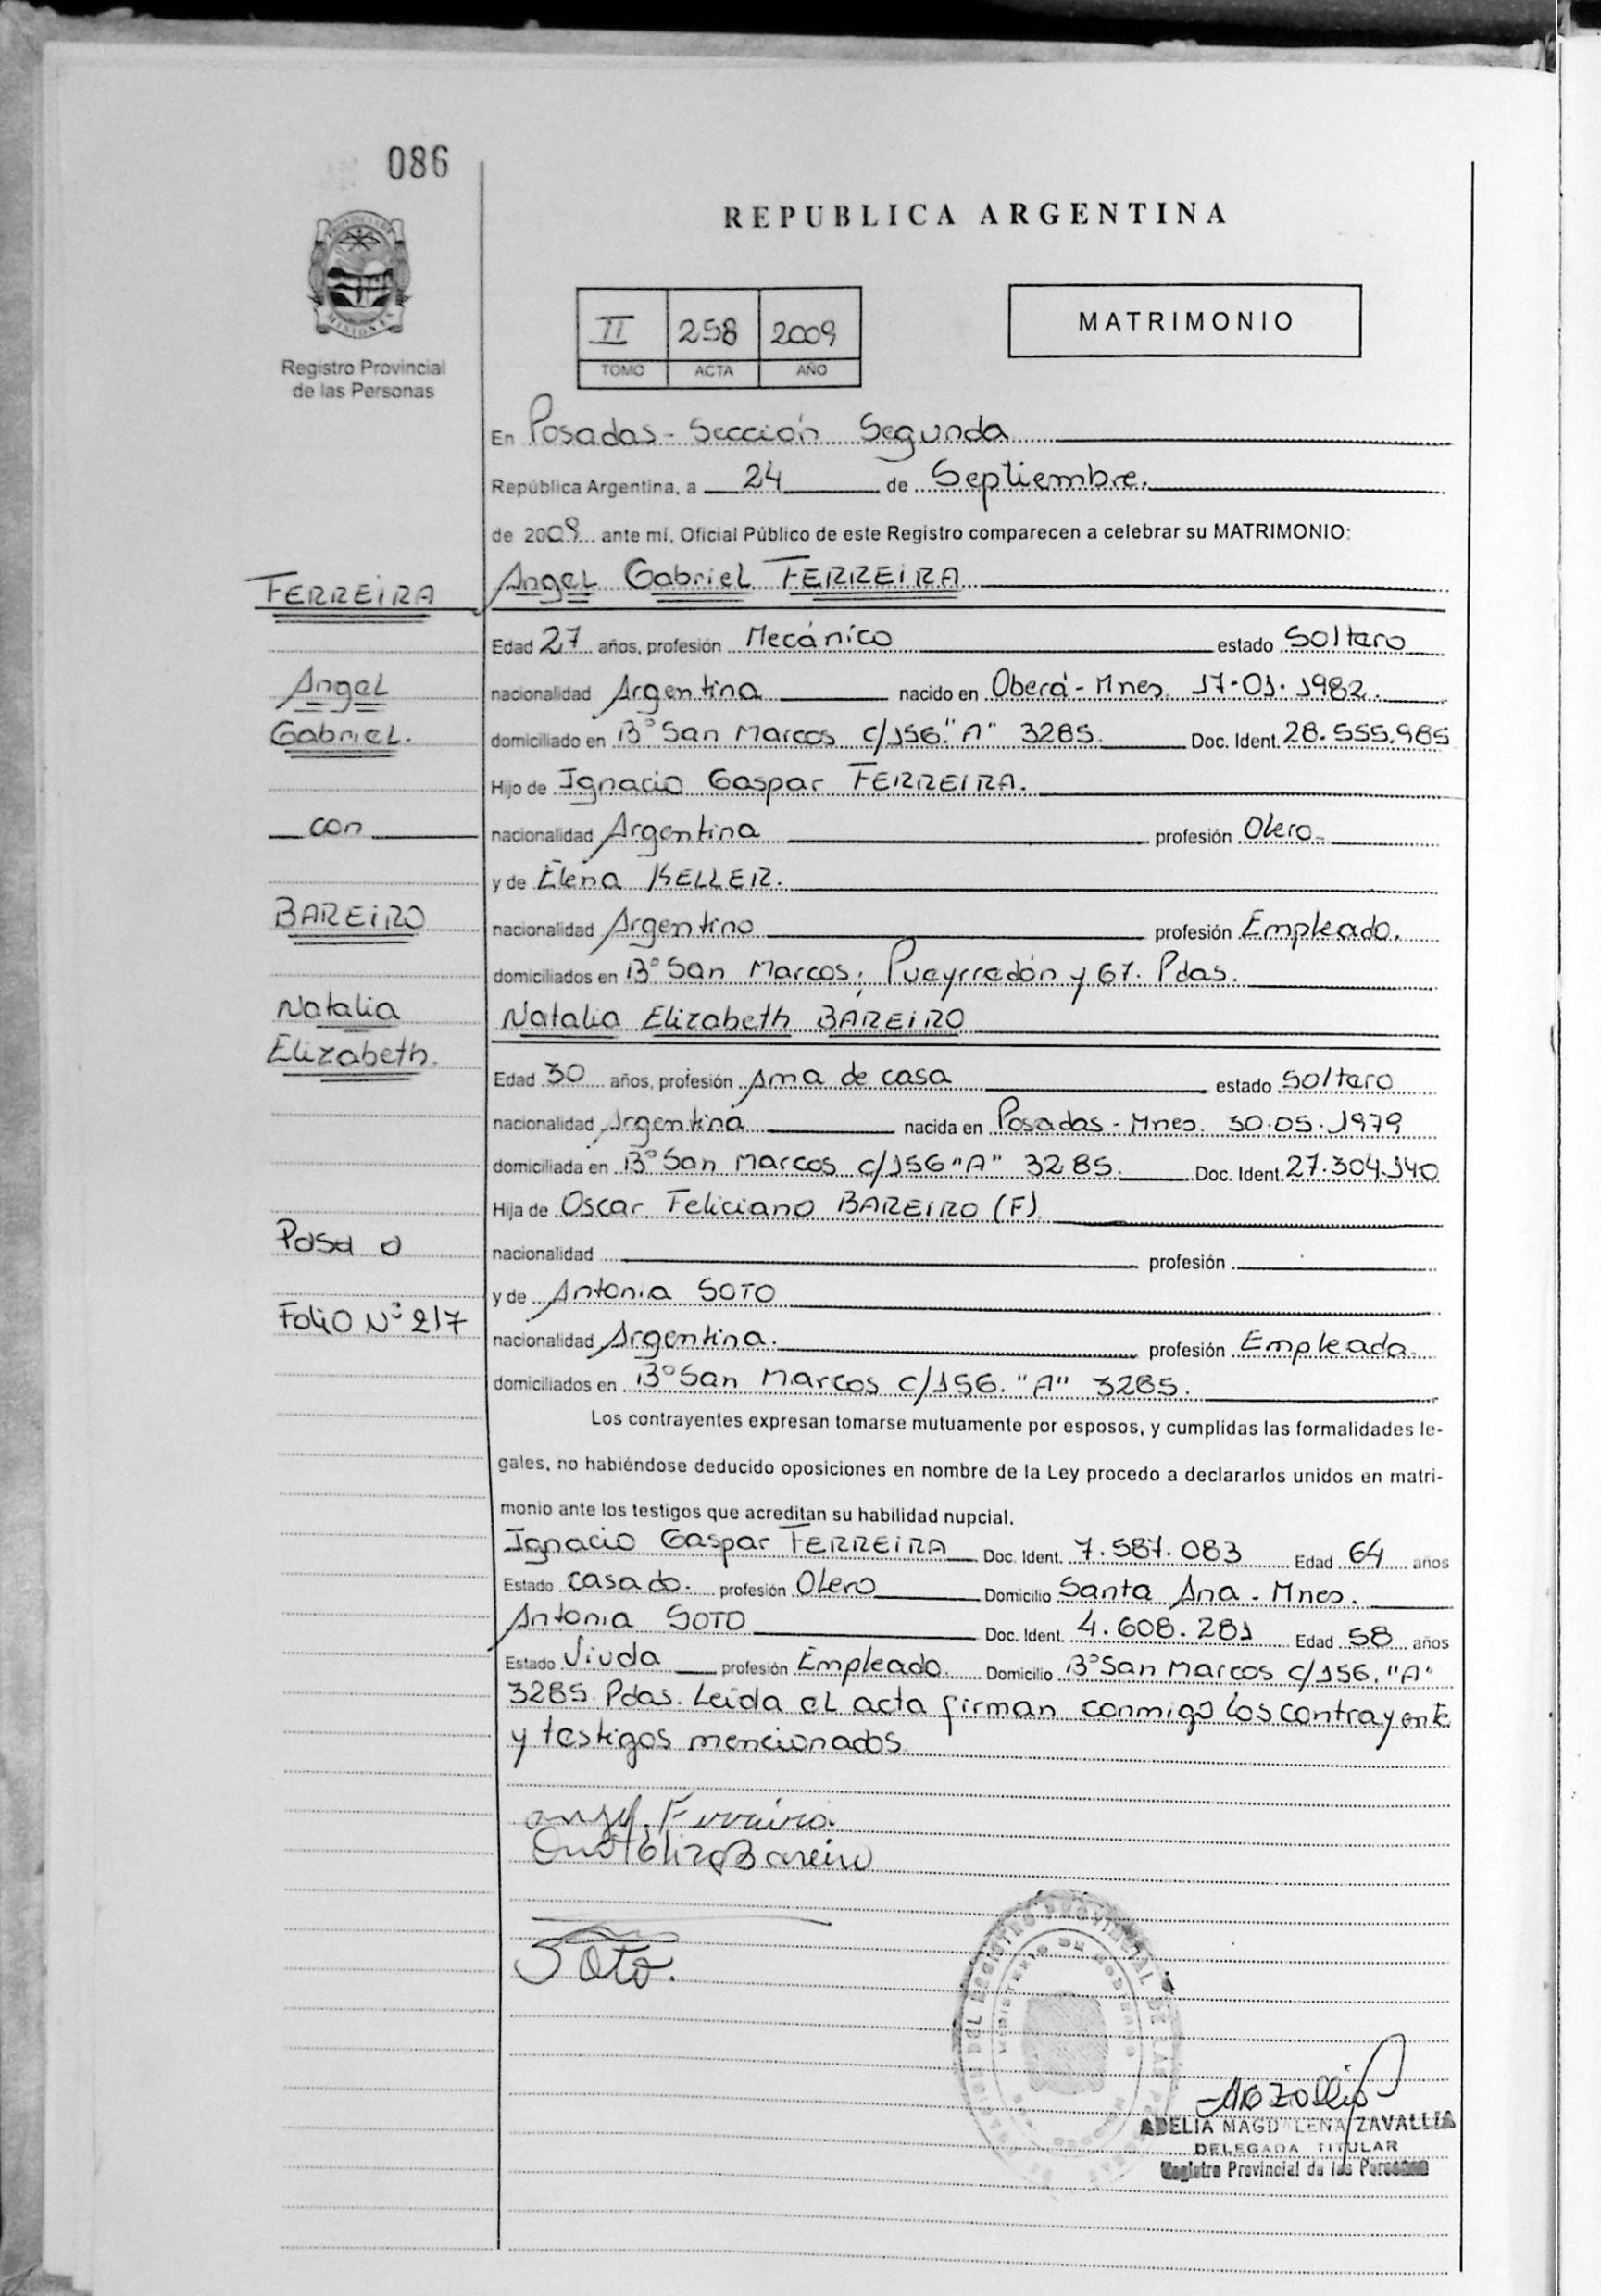 086
REPUBLICA ARGENTINA
MISIONES
Registro Provincial
de las Personas
II 258 2009
TOMO ACTA AÑO
MATRIMONIO
En Posadas - Sección Segunda
República Argentina, a 24 de Septiembre.
de 2009 ante mí, Oficial Público de este Registro comparecen a celebrar su MATRIMONIO:
FERREIRA
Angel Gabriel FERREIRA
Edad 27 años, profesión Mecánico estado Soltero
Angel
nacionalidad Argentina nacido en Oberá - Mnes. 17-01-1982.
Gabriel.
domiciliado en B° San Marcos c/156 "A" 3285. Doc. Ident. 28.555.985
Hijo de Ignacio Gaspar FERREIRA.
con
nacionalidad Argentina profesión Olero.
y de Elena KELLER.
BAREIRO
nacionalidad Argentina profesión Empleada.
domiciliados en B° San Marcos; Pueyrredón y 67. Pdas.
Natalia
Elizabeth.
Natalia Elizabeth BAREIRO
Edad 30 años, profesión Ama de casa estado Soltera
nacionalidad Argentina nacida en Posadas - Mnes. 30.05.1979
domiciliada en B° San Marcos c/156 "A" 3285. Doc. Ident. 27.304.140
Hija de Oscar Feliciano BAREIRO (F)
Pasa a
nacionalidad profesión
y de Antonia SOTO
Folio N° 217
nacionalidad Argentina. profesión Empleada.
domiciliados en B° San Marcos c/156. "A" 3285.
Los contrayentes expresan tomarse mutuamente por esposos, y cumplidas las formalidades le-
gales, no habiéndose deducido oposiciones en nombre de la Ley procedo a declararlos unidos en matri-
monio ante los testigos que acreditan su habilidad nupcial.
Ignacio Gaspar FERREIRA Doc. Ident. 7.587.083 Edad 64 años
Estado casado. profesión Olero Domicilio Santa Ana - Mnes.
Antonia SOTO Doc. Ident. 4.608.281 Edad 58 años
Estado Viuda profesión Empleada Domicilio B° San Marcos c/156. "A"
3285 Pdas. Leída el acta firman conmigo los contrayente
y testigos mencionados
Angel Ferreira.
Bareiro
Soto.
ADELIA MAGDALENA ZAVALLIA
DELEGADA TITULAR
Registro Provincial de las Personas